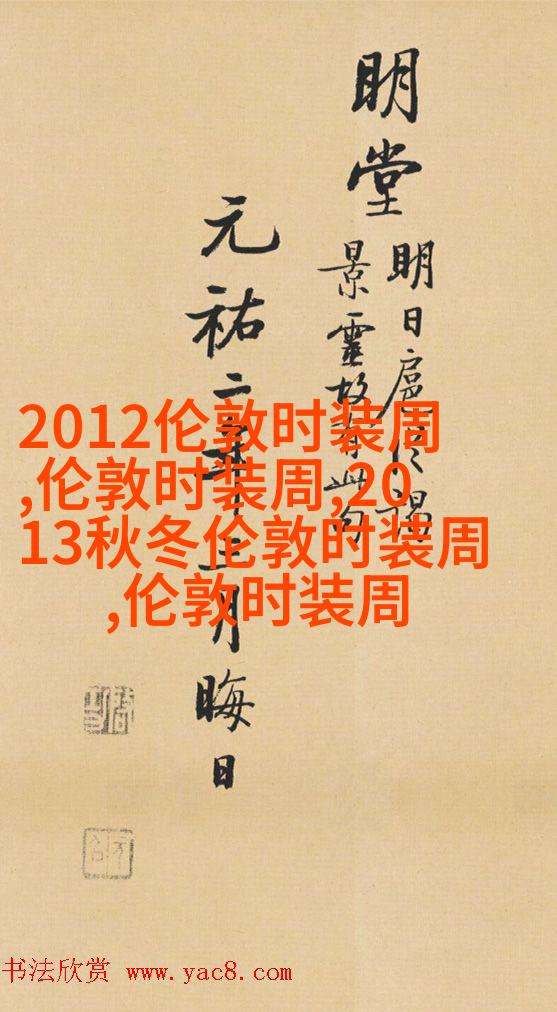 明堂
明日扈從謁
景靈故有此句
元祐月晦日
2012伦敦时装周
,伦敦时装周,20
13秋冬伦敦时装周
,伦敦时装周
书法欣赏 www.yac8.com